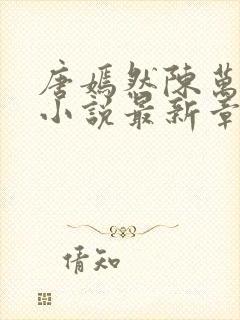 唐嫣然陳萬
小說最新章
倩知